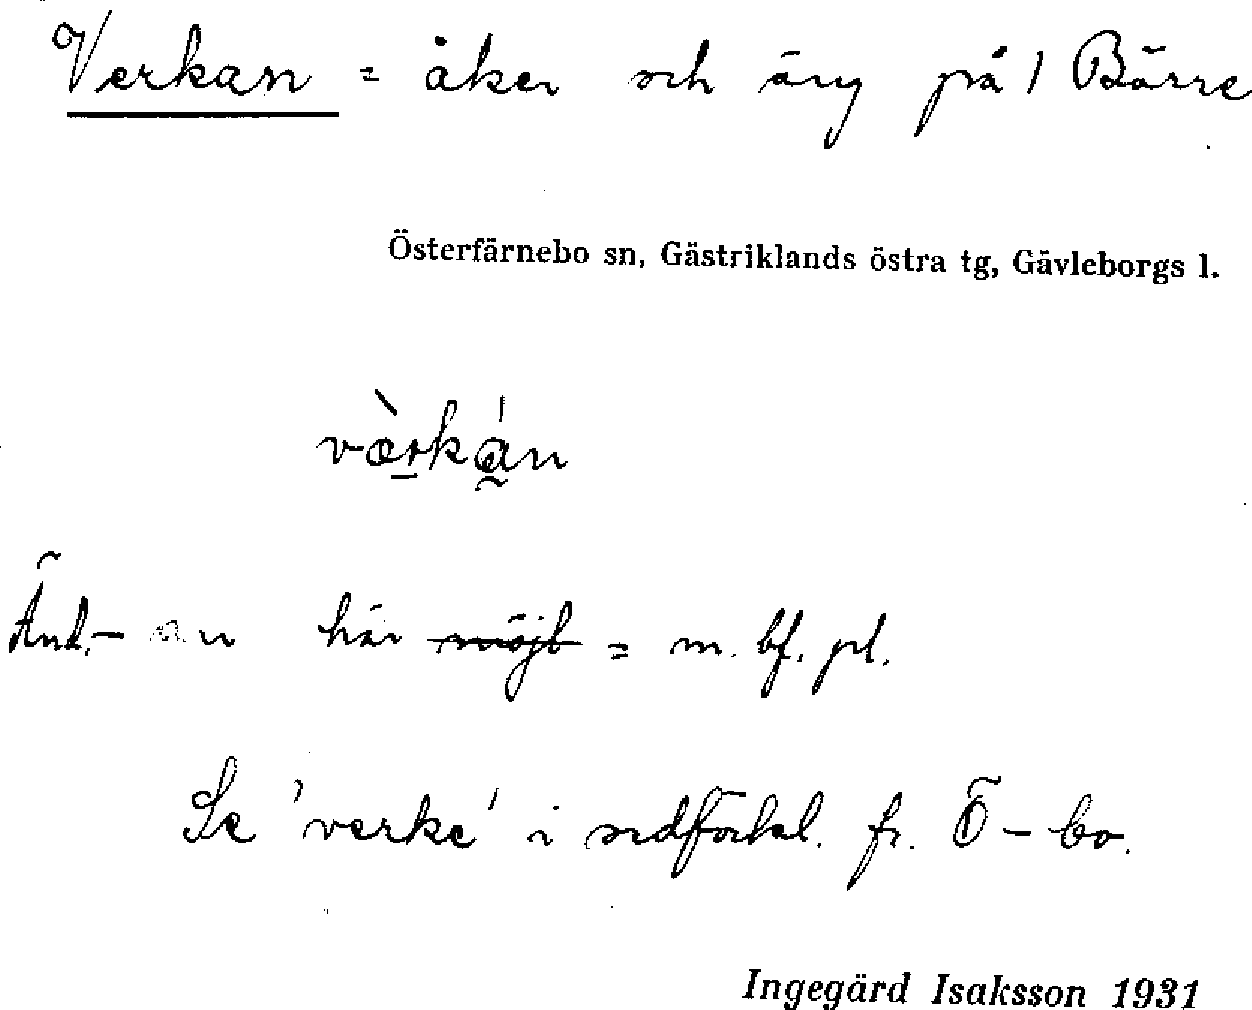 Verkan = åker och äng på 1 Bärre
Österfärnebo sn, Gästriklands östra tg, Gävleborgs l.
vær̲kán
Änd.- an här möjl = m. bf. pl.
Se 'verke' i ordförtal. fr. Ö-bo.
Ingegärd Isaksson 1931